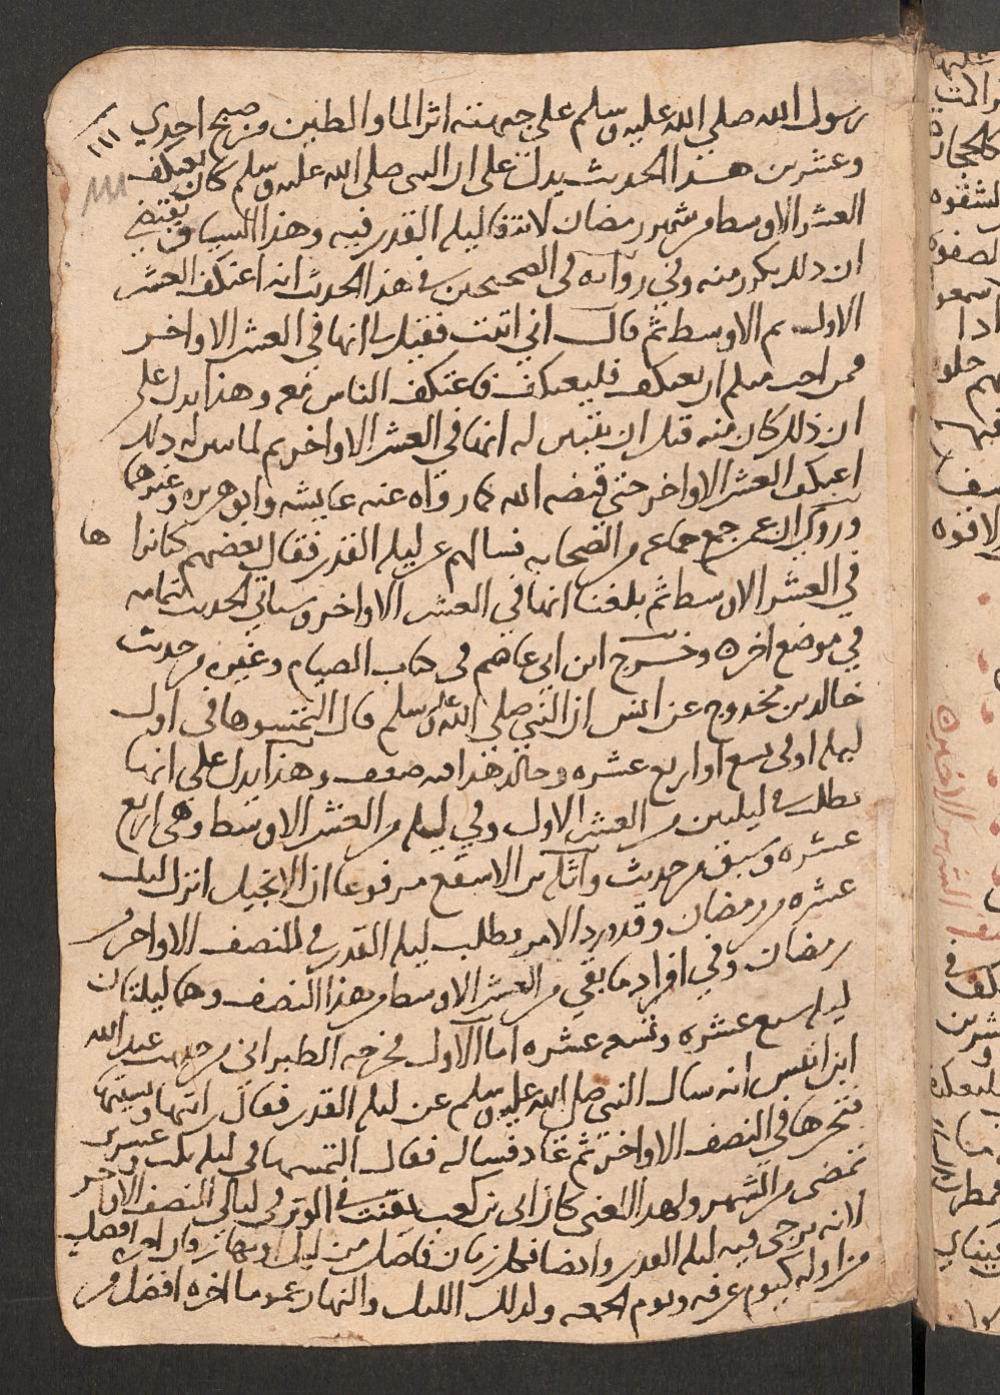 رسول الله صلى الله عليه وسلم على جبهته اثر الما والطين من صبح احدى
وعشرين هذا الحديث يدل على ان النبى صلى الله عليه وسلم كان يعتكف
العشر الاوسط من شهر رمضان لابتغا ليله القدر فيه وهذا السياق يقتضي
ان ذلك تكرر منه وفي روايه في الصحيحين في هذا الحديث انه اعتكف العشر
الاول ثم الاوسط ثم قال اني اتيت فقيل لي انها في العشر الاواخر
فمن احب منكم ان يعتكف فليعتكف فاعتكف الناس معه وهذا يدل على
ان ذلك كان منه قبل ان يتبين له انها في العشر الاواخر ثم لما تبين له ذلك
اعتكف العشر الاواخر حتى قبضه الله كما رواه عنه عايشه وابو هريره وغيرهما
وروي ان عمر جمع جماعه من الصحابه فسالهم عن ليله القدر فقال بعضهم كنا نراها
في العشر الاوسط ثم بلغنا انها في العشر الاواخر وسياتي الحديث بتمامه
في موضع اخر ه وخرج ابن ابي عاصم في كتاب الصيام وغيره من حديث
خالد بن محدوج عن انس ان النبي صلى الله عليه وسلم قال التمسوها في اول
ليله او في تسع او اربع عشره وخالد هذا فيه ضعف وهذا يدل على انها
تطلب في ليلتين من العشر الاول وفي ليله من العشر الاوسط وهي اربع
عشره وسبق من حديث واثله بن الاسقع مرفوعا ان الانجيل انزل لثلث
عشره من رمضان وقد ورد الامر بطلب ليله القدر في النصف الاواخر من
رمضان وفي افراد ما بقي من العشر الاوسط من هذا النصف وهما ليلتان
ليله سبع عشره وتسع عشره اما الاول فخرجه الطبراني من حديث عبد الله
ابن انيس انه سال النبي صلى الله عليه وسلم عن ليله القدر فقال رايتها ونسيتها
فتحرها في النصف الاواخر ثم عاد فساله فقال التمسها في ليله ثلث وعشرين
تمضي من الشهر ولهذا المعنى كان ابي بن كعب يقنت في الوتر في ليالي النصف الاواخر
لانه يرجى فيه ليله القدر وايضا فكل زمان فاضل من ليل او نهار فان اخره افضل
من اوله كيوم عرفه ويوم الجمعه ولذلك الليل والنهار عموما اخره افضل من